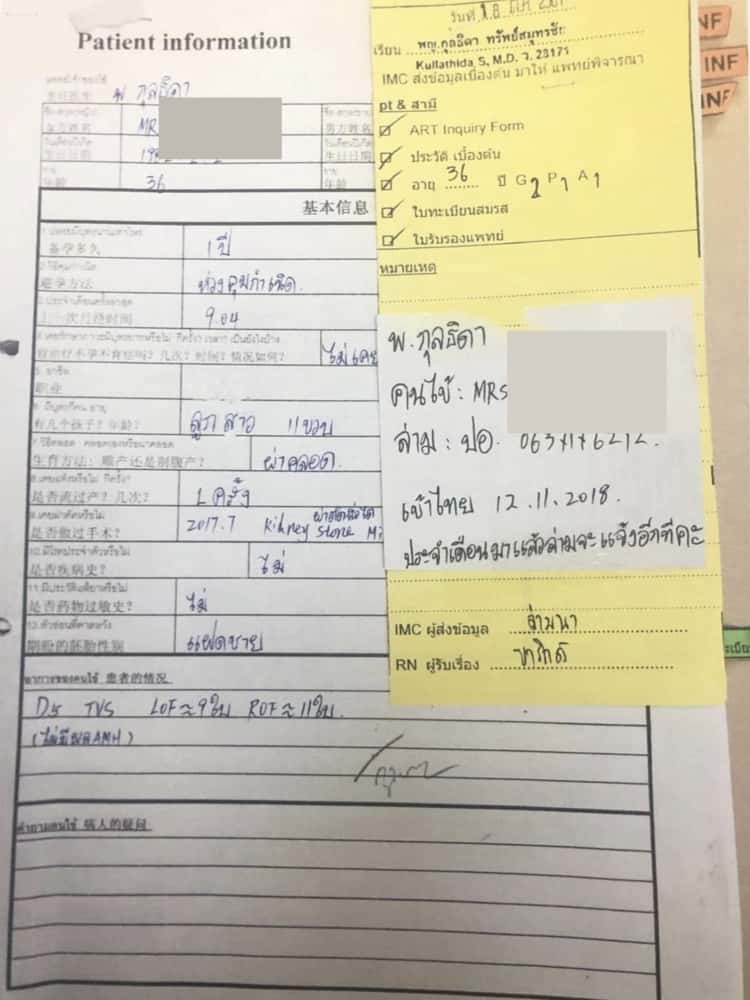 Patient information
主治医生 พ กุลธิดา
女方姓名 MRS
男方姓名
生日日期
生日日期
年龄 36
年龄
基本信息
备孕多久 1 ปี
避孕方法 ห่วงคุมกำเนิด.
上一次月经时间 9.04
有治疗不孕不育症吗？几次？时间？情况如何？ ไม่เคย
5. อาชีพ
职业
有几个孩子？年龄？ ลูกสาว 11ขวบ
生育方法：顺产还是剖腹产？ ผ่าคลอด.
是否流过产？几次？ 1 ครั้ง
是否做过手术？ 2017.7 Kikney Stone
是否疾病史？ ไม่
是否药物过敏史？ ไม่
期盼的胚胎性别 แฝดชาย
อาการของคนไข้ 患者的情况
TVS LOF≈9ใบ ROF≈11ใบ.
(ไม่มีผลAMH)
คำถามคนไข้ 病人的疑问
เรียน พญ.กุลธิดา ทรัพย์สมุทรชัย
Kullathida, S, M.D. ว. 23171
IMC ส่งข้อมูลเบื้องต้น มาให้ แพทย์พิจารณา
pt & สามี
ART Inquiry Form
ประวัติ เบื้องต้น
อายุ 36 ปี G 2 P 1 A 1
ใบทะเบียนสมรส
ใบรับรองแพทย์
หมายเหตุ
พ. กุลธิดา
คนไข้ : MRS
ล่าม : ปอ.
เข้าไทย 12.11.2018.
ประจำเดือนมาแล้วล่ามจะแจ้งอีกทีค่ะ
IMC ผู้ส่งข้อมูล
RN ผู้รับเรื่อง
INF
INF
INF